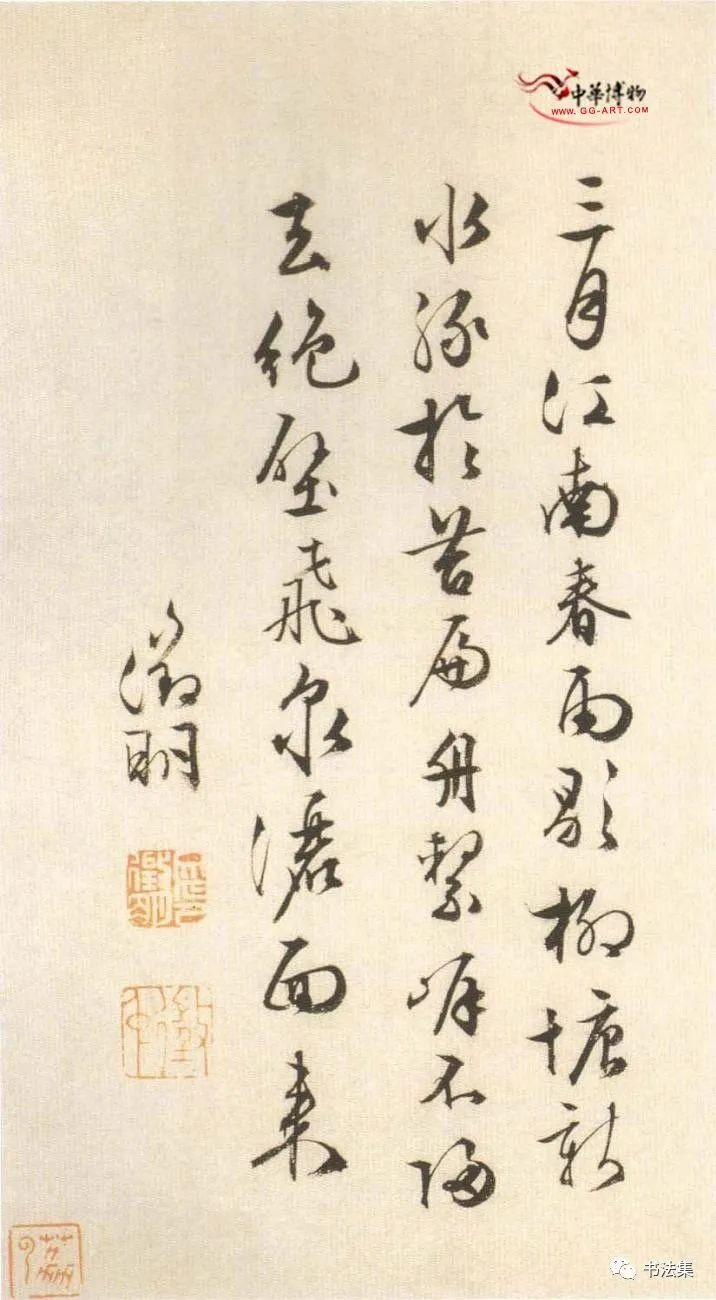 中華博物
WWW.GG-ART.COM
三月江南春雨歇柳塘新
水綠於苔扁舟繫岸不歸
去絕壁飛泉灑面來
徵明
书法集